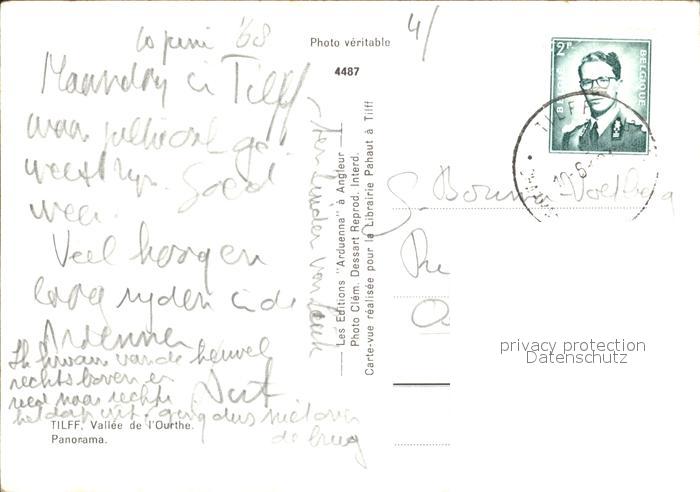 10 juni '68
Maandag in Tilff
waar jullie ook ge-
weest zijn. Goed
weer.
Veel hoog en
laag rijden in de
Ardennen
Ik kwam van de heuvel
rechts boven en
reed naar rechts
het dorp uit, ging dus niet over
de brug
4/
Photo véritable
4487
Les Editions "Arduenna" à Angleur
Photo Clém. Dessart Reprod. Interd.
Carte-vue réalisée pour la Librairie Pahaut à Tilff
2F
BELGIQUE
BELGIE
TILFF
10-6
privacy protection
Datenschutz
TILFF, Vallée de l'Ourthe.
Panorama.